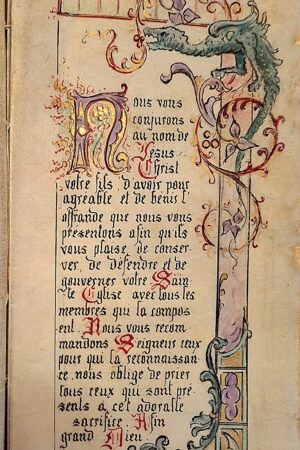 Nous vous
conjurons
au nom de
Jesus
Christ
votre fils, d'avoir pour
agreable et de benir l'
offrande que nous vous
presentons afin qu'ils
vous plaise, de conser-
ver, de défendre et de
gouverner votre Sain-
te Eglise avec tous les
membres qui la compos
ent. Nous vous recom
mandons Seigneur ceux
pour qui la reconnaissan
ce, nous oblige de prier
tous ceux qui sont pré-
sents a cet adorable
sacrifice. Afin
grand Dieu